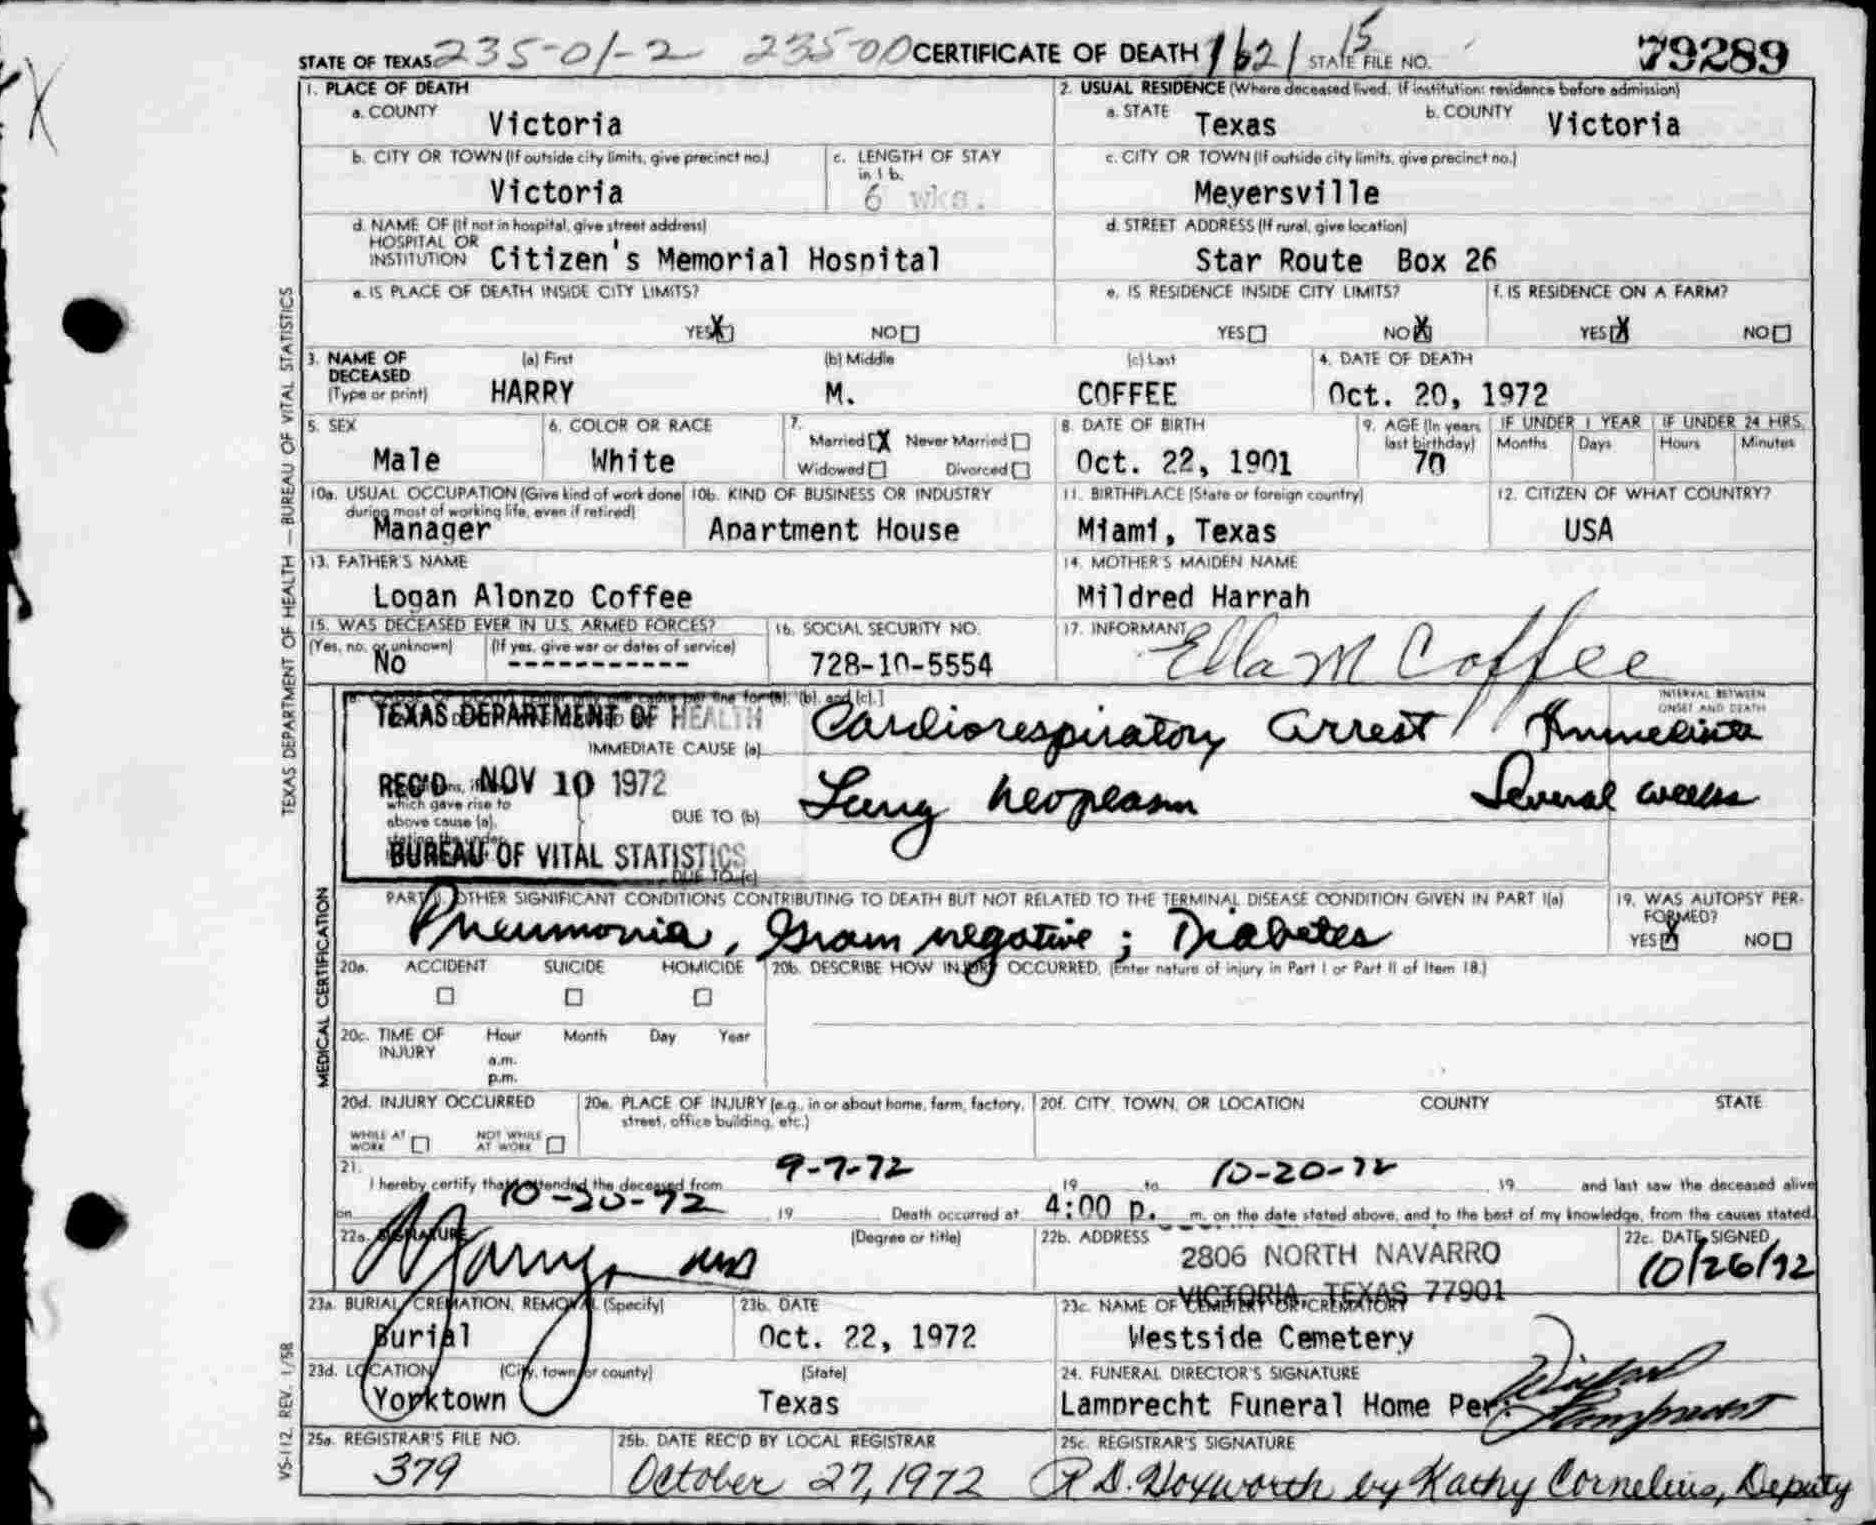 STATE OF TEXAS 235-01-2 235-00 CERTIFICATE OF DEATH 1621 15 STATE FILE NO. 79289
1. PLACE OF DEATH
a. COUNTY Victoria
2. USUAL RESIDENCE (Where deceased lived. If institution: residence before admission)
a. STATE Texas b. COUNTY Victoria
b. CITY OR TOWN (If outside city limits, give precinct no.) Victoria
c. LENGTH OF STAY in 1 b. 6 wks.
c. CITY OR TOWN (If outside city limits, give precinct no.) Meyersville
d. NAME OF (If not in hospital, give street address)
HOSPITAL OR
INSTITUTION Citizen's Memorial Hospital
d. STREET ADDRESS (If rural, give location)
Star Route Box 26
e. IS PLACE OF DEATH INSIDE CITY LIMITS?
YES X NO
e. IS RESIDENCE INSIDE CITY LIMITS?
YES NO X
f. IS RESIDENCE ON A FARM?
YES X NO
3. NAME OF DECEASED (Type or print)
(a) First HARRY (b) Middle M. (c) Last COFFEE
4. DATE OF DEATH Oct. 20, 1972
5. SEX Male
6. COLOR OR RACE White
7. Married X Never Married
Widowed Divorced
8. DATE OF BIRTH Oct. 22, 1901
9. AGE (In years last birthday) 70
IF UNDER 1 YEAR Months Days
IF UNDER 24 HRS. Hours Minutes
10a. USUAL OCCUPATION (Give kind of work done during most of working life, even if retired) Manager
10b. KIND OF BUSINESS OR INDUSTRY Apartment House
11. BIRTHPLACE (State or foreign country) Miami, Texas
12. CITIZEN OF WHAT COUNTRY? USA
13. FATHER'S NAME
Logan Alonzo Coffee
14. MOTHER'S MAIDEN NAME
Mildred Harrah
15. WAS DECEASED EVER IN U.S. ARMED FORCES?
(Yes, no, or unknown) No (If yes, give war or dates of service) ------------
16. SOCIAL SECURITY NO. 728-10-5554
17. INFORMANT Ella M Coffee
TEXAS DEPARTMENT OF HEALTH
REC'D NOV 10 1972
BUREAU OF VITAL STATISTICS
line for (a), (b), and (c).]
INTERVAL BETWEEN ONSET AND DEATH
IMMEDIATE CAUSE (a) Cardiorespiratory arrest Immediate
which gave rise to
above cause (a),
stating the under
DUE TO (b) Lung neoplasm Several weeks
DUE TO (c)
PART II. OTHER SIGNIFICANT CONDITIONS CONTRIBUTING TO DEATH BUT NOT RELATED TO THE TERMINAL DISEASE CONDITION GIVEN IN PART I(a)
Pneumonia, Gram negative; Diabetes
19. WAS AUTOPSY PERFORMED?
YES X NO
20a. ACCIDENT SUICIDE HOMICIDE
20b. DESCRIBE HOW INJURY OCCURRED. (Enter nature of injury in Part I or Part II of Item 18.)
20c. TIME OF INJURY Hour Month Day Year
a.m.
p.m.
20d. INJURY OCCURRED
WHILE AT WORK NOT WHILE AT WORK
20e. PLACE OF INJURY (e.g., in or about home, farm, factory, street, office building, etc.)
20f. CITY, TOWN, OR LOCATION COUNTY STATE
21.
I hereby certify that I attended the deceased from 9-7-72 19 to 10-20-72, 19 and last saw the deceased alive
on 10-20-72, 19 Death occurred at 4:00 p. m. on the date stated above, and to the best of my knowledge, from the causes stated.
22a. SIGNATURE (Degree or title)
22b. ADDRESS 2806 NORTH NAVARRO
VICTORIA, TEXAS 77901
22c. DATE SIGNED 10/26/72
23a. BURIAL, CREMATION, REMOVAL (Specify)
Burial
23b. DATE
Oct. 22, 1972
23c. NAME OF CEMETERY OR CREMATORY
Westside Cemetery
23d. LOCATION (City, town, or county) (State)
Yorktown Texas
24. FUNERAL DIRECTOR'S SIGNATURE
Lamprecht Funeral Home Per:
25a. REGISTRAR'S FILE NO.
379
25b. DATE REC'D BY LOCAL REGISTRAR
October 27, 1972
25c. REGISTRAR'S SIGNATURE
R D. Hoxworth by Kathy Cornelius, Deputy
TEXAS DEPARTMENT OF HEALTH — BUREAU OF VITAL STATISTICS
MEDICAL CERTIFICATION
VS-112, REV. 1/58